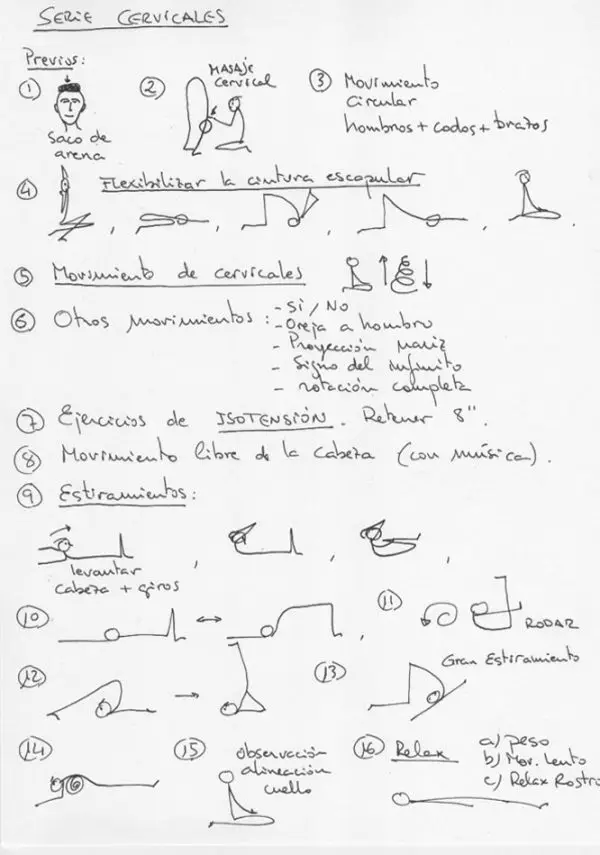 SERIE CERVICALES
Previos:
① Saco de
arena
② MASAJE
Cervical
③ Movimiento
circular
hombros + codos + brazos
④ Flexibilizar la cintura escapular
⑤ Movimiento de cervicales
⑥ Otros movimientos: - Sí / No
- Oreja a hombro
- Proyección nariz
- Signo del infinito
- rotación completa
⑦ Ejercicios de ISOTENSIÓN. Retener 8".
⑧ Movimiento libre de la cabeza (con música).
⑨ Estiramientos:
levantar
cabeza + giros
⑩
⑪ RODAR
⑫
⑬ Gran Estiramiento
⑭
⑮ observación
alineación
cuello
⑯ Relax a) peso
b) Mov. lento
c) Relax Rostro